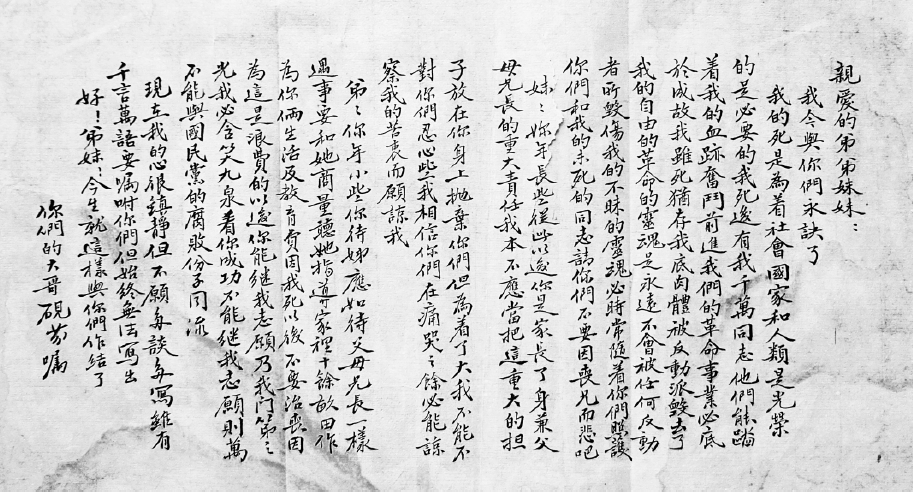 親愛的弟弟妹妹：
我今與你們永訣了
我的死是為着社會國家和人類是光榮
的是必要的我死後有我千萬同志他們能踏
着我的血跡奮鬥前進我們的革命事業必底
於成故我雖死猶存我底肉體被反動派毀去了
我的自由的革命的靈魂是永遠不會被任何反動
者所毀傷我的不昧的靈魂必時常隨着你們照護
你們和我的未死的同志請你們不要因喪兄而悲吧
妹〻妳年長些從此以後你是家長了身兼父
母兄長的重大責任我本不應當把這重大的担
子放在你身上拋棄你們但為着了大我不能不
對你們忍心些我相信你們在痛哭之餘必能諒
察我的苦衷而願諒我
弟〻你年小些你待姊應如待父母兄長一樣
遇事要和她商量聽她指導家裡十餘畝田作
為你倆生活及教育費因我死以後不要治喪因
為這是浪費的以後你能継我志願乃我門第之
光我必含笑九泉看你成功不能継我志願則萬
不能與國民黨的腐敗份子同流
現在我的心很鎮靜但不願多談多寫雖有
千言萬語要囑咐你們但始終無法寫出
好！弟妹〻今生就這樣與你們作結了
你們的大哥硯芬囑